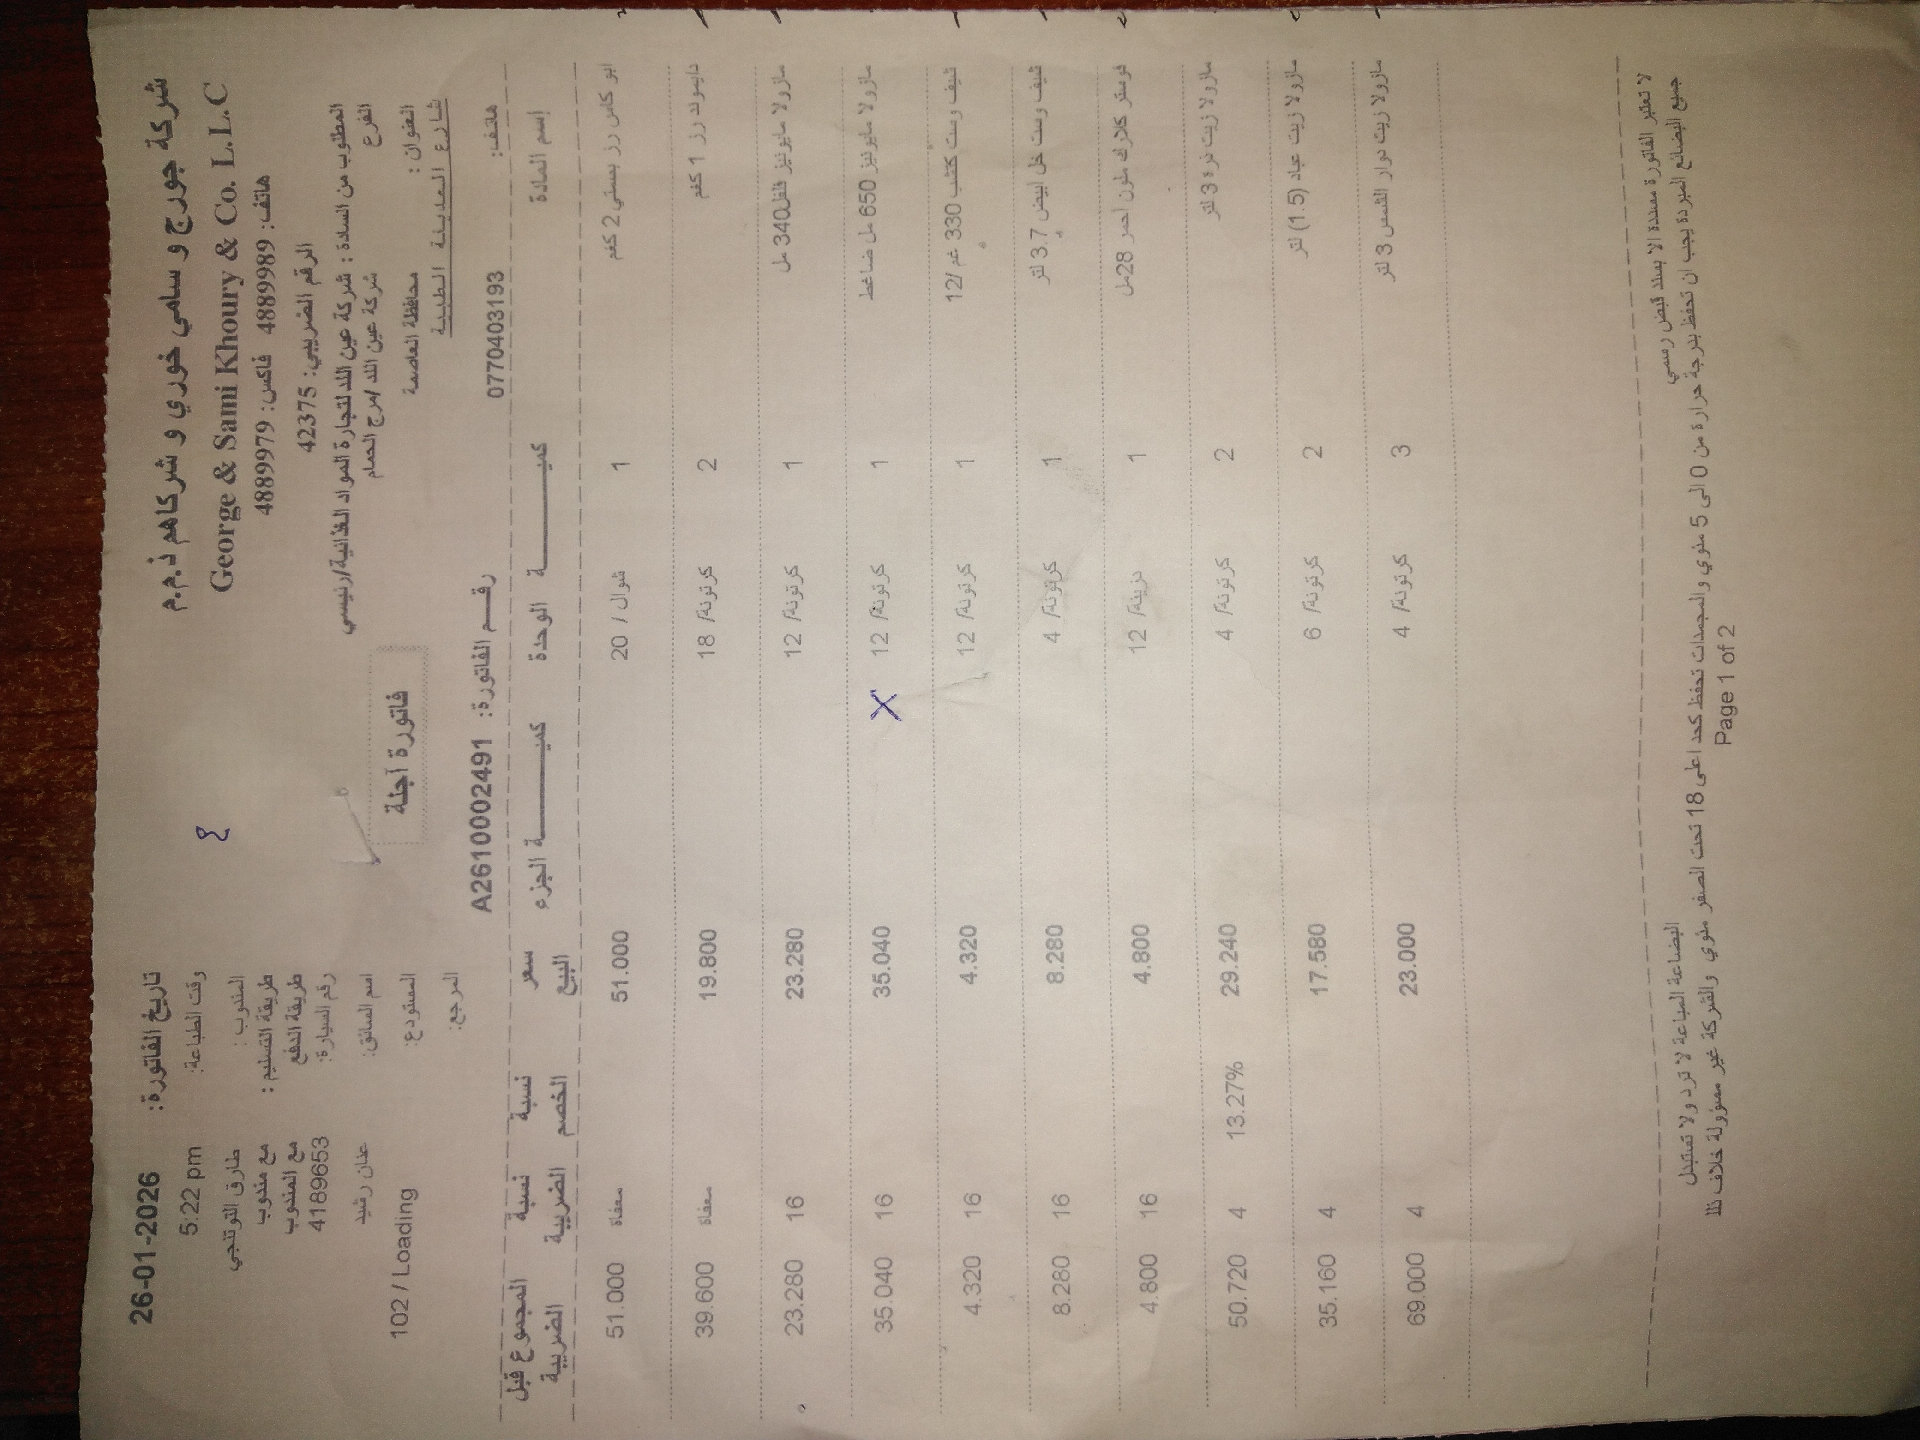 شركة جورج و سامي خوري و شركاهم ذ.م.م
George & Sami Khoury & Co. L.L.C
هاتف: 4889989 فاكس: 4889979
الرقم الضريبي: 42375
المطلوب من السادة : شركة عين اللد لتجارة المواد الغذائية/رئيسي
الفرع شركة عين اللد /مرج الحمام
العنوان : محافظة العاصمة
شارع المدينة الطبية
هاتف: 0770403193
تاريخ الفاتورة: 26-01-2026
وقت الطباعة: 5:22 pm
المندوب : طارق التوتنجي
طريقة التسليم : مع مندوب
طريقة الدفع مع المندوب
رقم السيارة: 4189653
اسم السائق: عنان رشيد
المستودع: 102 / Loading
المرجع:
٤
فاتورة آجلة
رقم الفاتورة: A2610002491
إسم المادة كميــة الوحدة كميــة الجزء سعر البيع نسبة الخصم نسبة الضريبة المجموع قبل الضريبة
ابو كاس رز بسمتي 2 كغم 1 شوال / 20 51.000 معفاة 51.000
دايموند رز 1 كغم 2 كرتونة/ 18 19.800 معفاة 39.600
مازولا مايونيز فلفل 340 مل 1 كرتونة/ 12 23.280 16 23.280
مازولا مايونيز 650 مل ضاغط 1 كرتونة/ 12 X 35.040 16 35.040
ليف وست كتشب 330 غم /12 1 كرتونة/ 12 4.320 16 4.320
ليف وست خل ابيض 3.7 لتر 1 كرتونة/ 4 8.280 16 8.280
فوستر كلارك ملون احمر 28مل 1 درزينة/ 12 4.800 16 4.800
مازولا زيت ذرة 3 لتر 2 كرتونة/ 4 29.240 13.27% 4 50.720
مازولا زيت عباد (1.5) لتر 2 كرتونة/ 6 17.580 4 35.160
مازولا زيت دوار الشمس 3 لتر 3 كرتونة/ 4 23.000 4 69.000
لا تعتبر الفاتورة مسددة الا بسند قبض رسمي
البضاعة المباعة لا ترد ولا تستبدل
جميع البضائع المبردة يجب ان تحفظ بدرجة حرارة من 0 الى 5 مئوي والمجمدات تحفظ كحد اعلى 18 تحت الصفر مئوي والشركة غير مسؤولة خلاف ذلك
Page 1 of 2